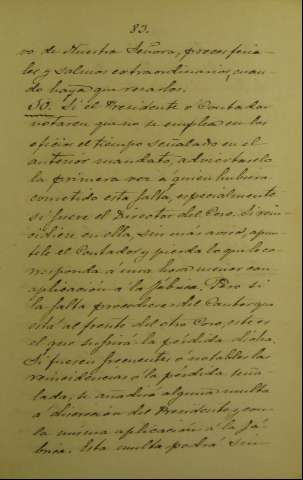 83.
ro de Nuestra Señora, preces feria-
les y salmos extraordinarios, cuan-
do haya que rezarlos.
30. Si el Presidente ó Contador
notaren que no se emplea en los
oficios el tiempo señalado en el
anterior mandato, adviertanselo
la primera vez á quien hubiere
cometido esta falta, especialmente
si fuere el Director del Coro. Si rein-
cidiere en ella, sin más aviso, apún-
telo el Contador y pierda lo que le co-
rresponda á una hora menor con
aplicacion á la fábrica. Pero si
la falta procediere del Cantor que
está al frente del otro Coro, este es
el que sufrirá la pérdida dicha.
Si fuesen frecuentes ó notables las
reincidencias á la pérdida seña-
lada, se añadirá alguna multa
á discrecion del Presidente y con
la misma aplicacion á la fá-
brica. Esta multa podrá sin